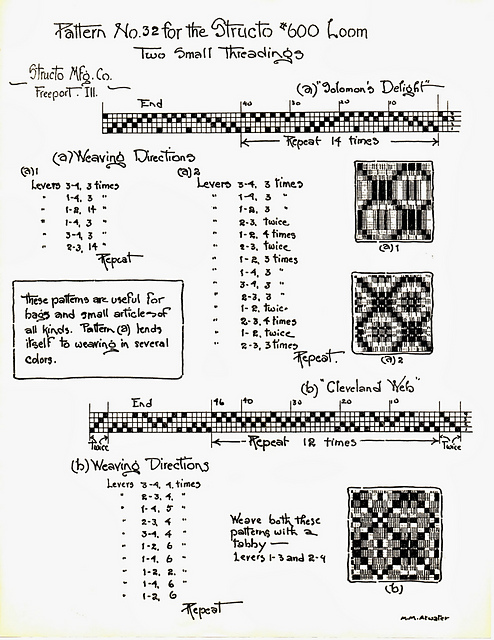 Pattern No. 32 for the Structo #600 Loom
Two Small Threadings
Structo Mfg. Co.
Freeport. Ill.
(a) "Solomon's Delight"
End 40 30 20 10
Repeat 14 times
(a) Weaving Directions
(a)1
Levers 3-4, 3 times
" 1-4, 3 "
" 1-2, 14 "
" 1-4, 3 "
" 3-4, 3 "
" 2-3, 14 "
Repeat
(a)2
Levers 3-4, 3 times
" 1-4, 3 "
" 1-2, 3 "
" 2-3, twice
" 1-2, 4 times
" 2-3, twice
" 1-2, 3 times
" 1-4, 3 "
" 3-4, 3 "
" 2-3, 3 "
" 1-2, twice
" 2-3, 4 times
" 1-2, twice
" 2-3, 3 times
Repeat.
(a)1
(a)2
These patterns are useful for
bags and small articles of
all kinds. Pattern (a) lends
itself to weaving in several
colors.
(b) "Cleveland Web"
End 46 40 30 20 10
Twice Repeat 12 times Twice
(b) Weaving Directions
Levers 3-4, 4, times
" 2-3, 4, "
" 1-4, 5 "
" 2-3, 4 "
" 3-4, 4 "
" 1-2, 6 "
" 1-4, 6 "
" 1-2, 2, "
" 1-4, 6 "
" 1-2, 6
Repeat
Weave both these
patterns with a
tabby —
Levers 1-3 and 2-4
(b)
M.M. Atwater